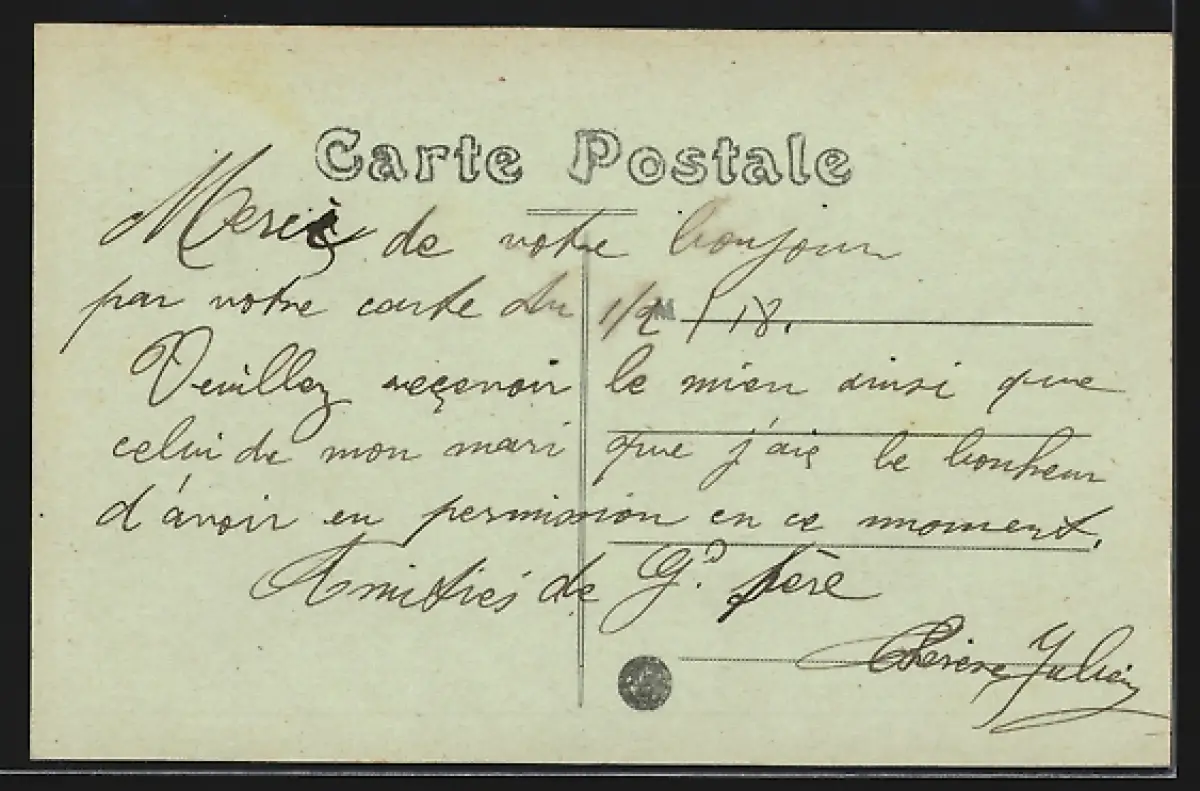 Carte Postale
Merci de votre bonjour
par votre carte du 1/2/18.
M
Veuillez reçevoir le mien ainsi que
celui de mon mari que j'aie le bonheur
d'avoir en permission en ce moment.
Amitiés de Gd père
Thérèse Julien